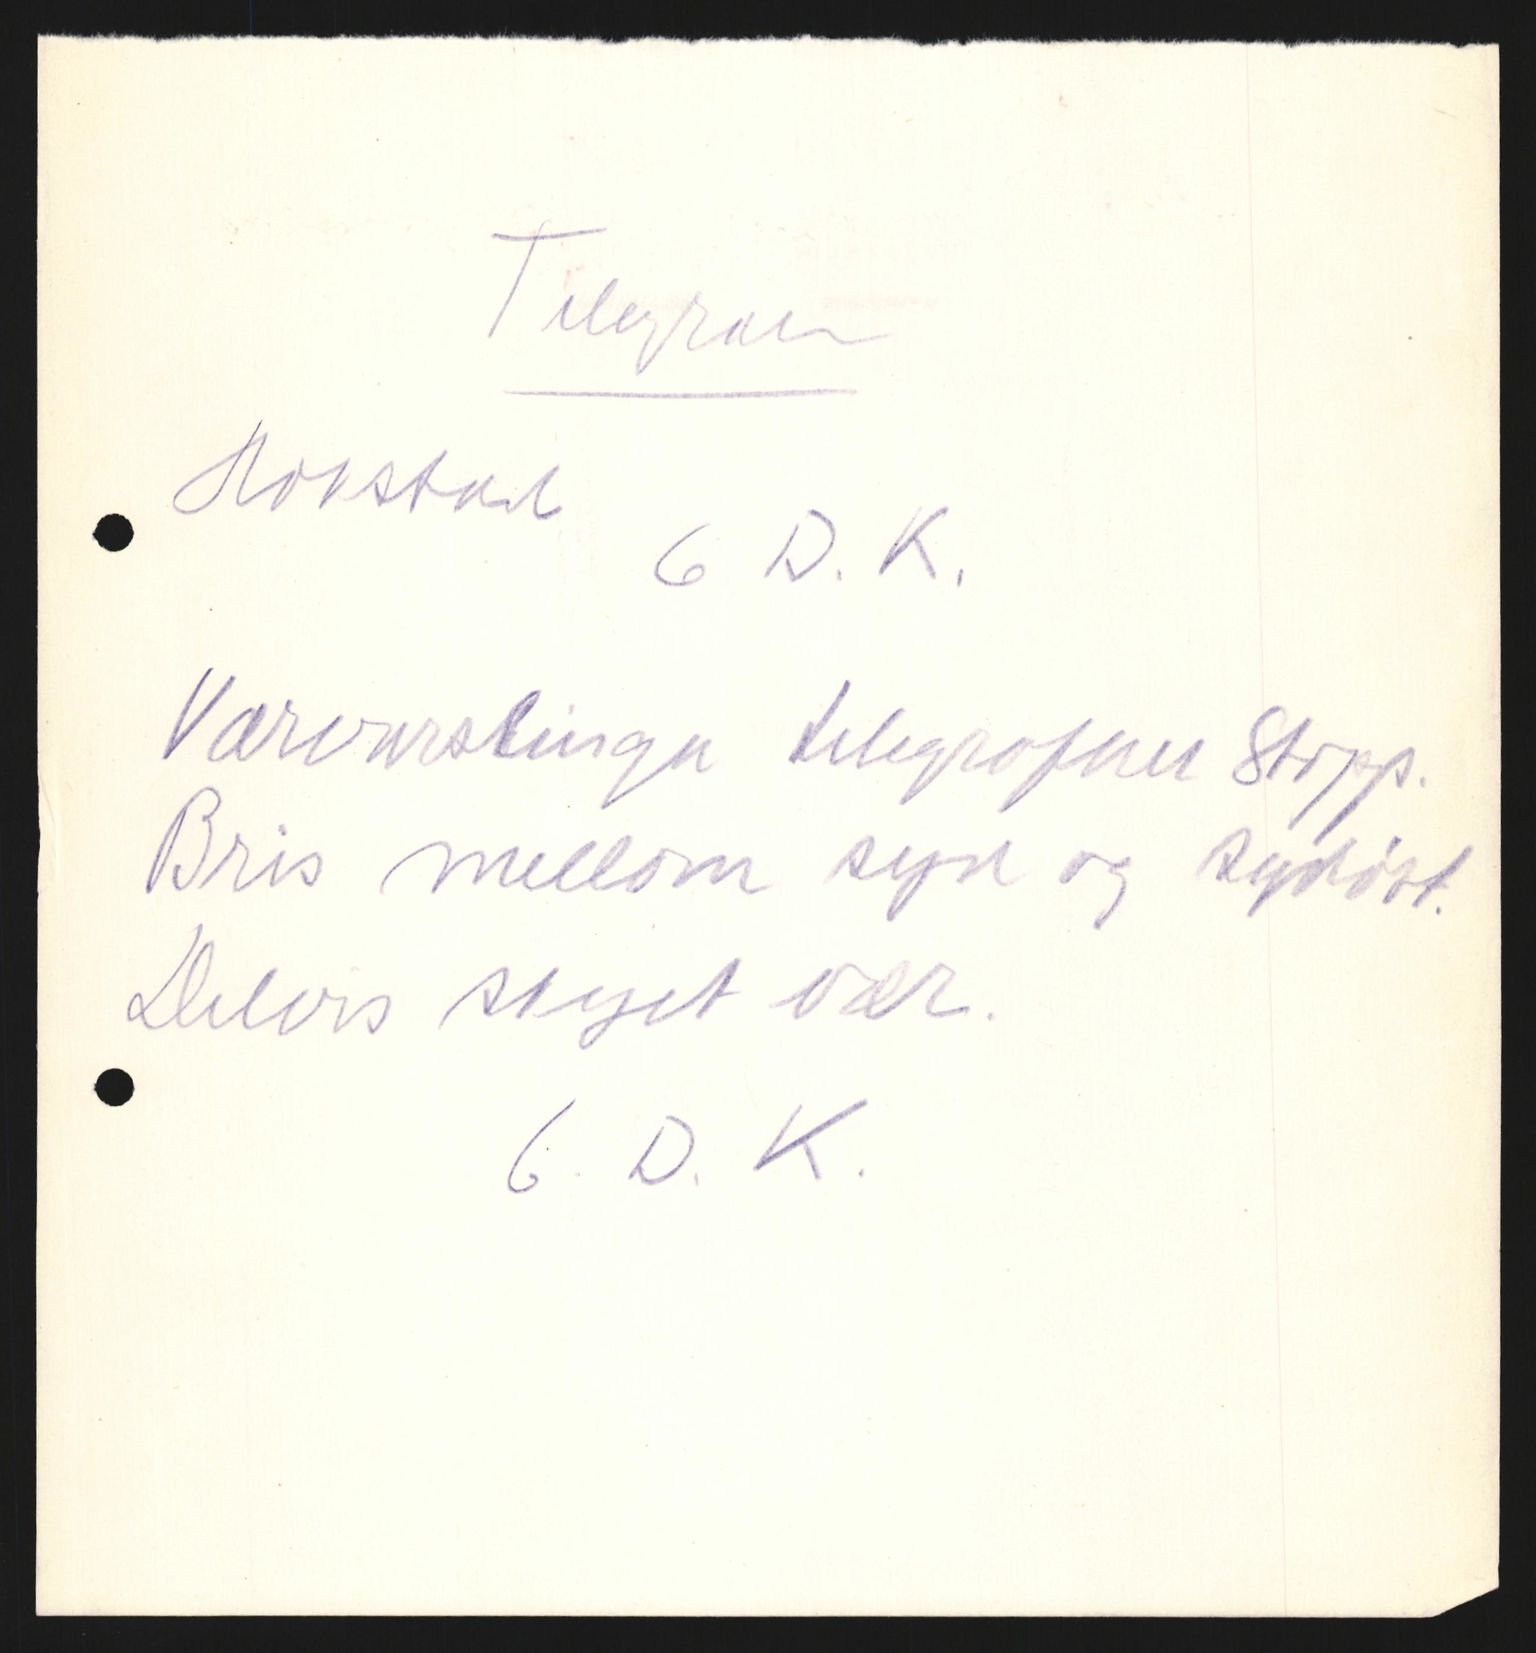 Telegram
Rokstad
6 D. K.
Værvarslinga telegraferer Stopp.
Bris mellom syd og sydöst.
Delvis skyet vær.
6. D. K.